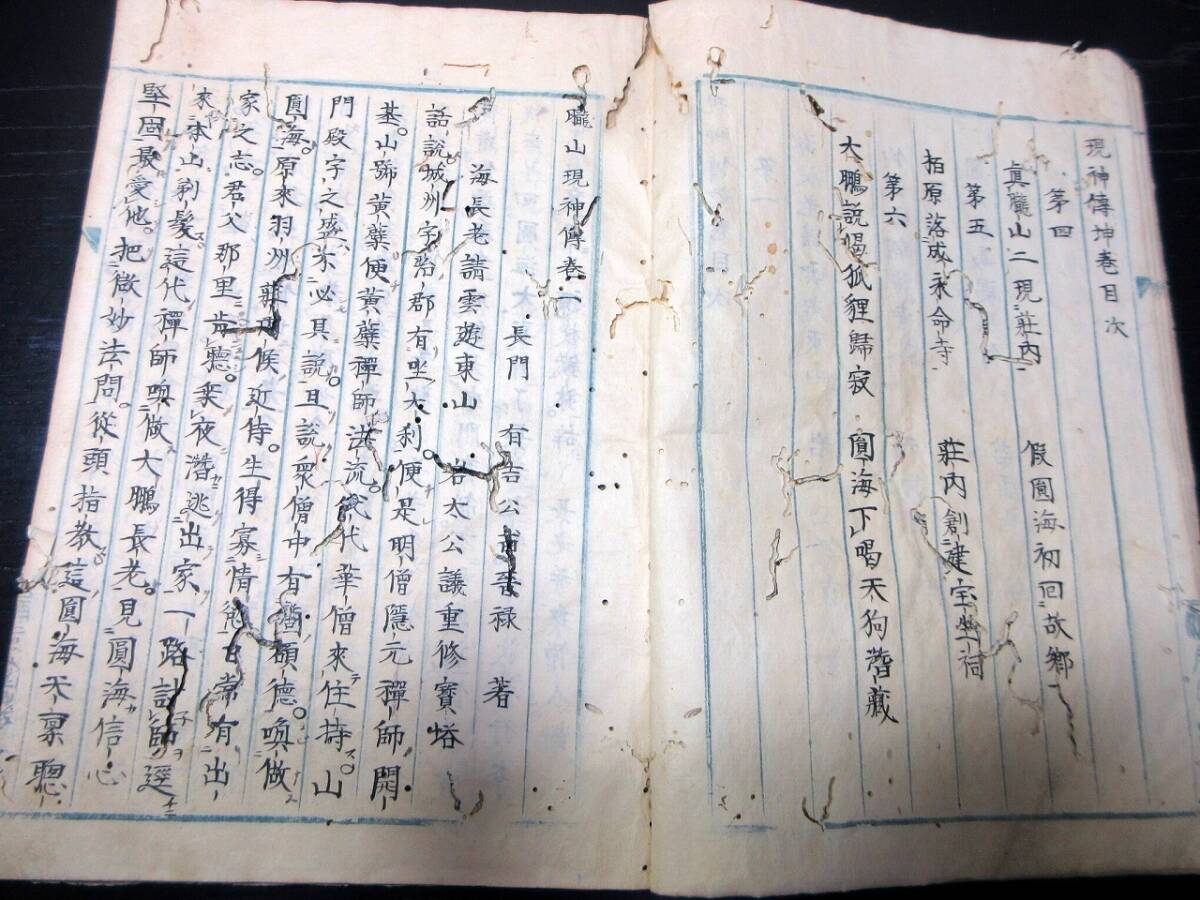 現神傳坤卷目次
第四
眞隴山二現莊內　假圓海初回故鄉
第五
柏原落成永命寺　莊內創建宝坐祠
第六
大鵬說偈狐狸歸寂　圓海下喝天狗潛藏
隴山現神傳卷一
長門　有吉公　著
海長老請雲遊東山　岩太公議重修寶塔
話說城州宇治郡有坐大刹便是明僧隱元禪師開
基山號黃蘗便黃蘗禪師洪流幾代華僧來住持山
門殿宇之盛不必具說且說衆僧中有 碩德喚做
圓海原來羽州莊內候近侍生得寡情慾日常有出
家之志君父那里肯聽乘夜潛逃出家一路 師逕
來本山剃髮這代禪師喚做大鵬長老見圓海信心
堅固最愛他把微妙法問從頭指教這圓海天禀聰